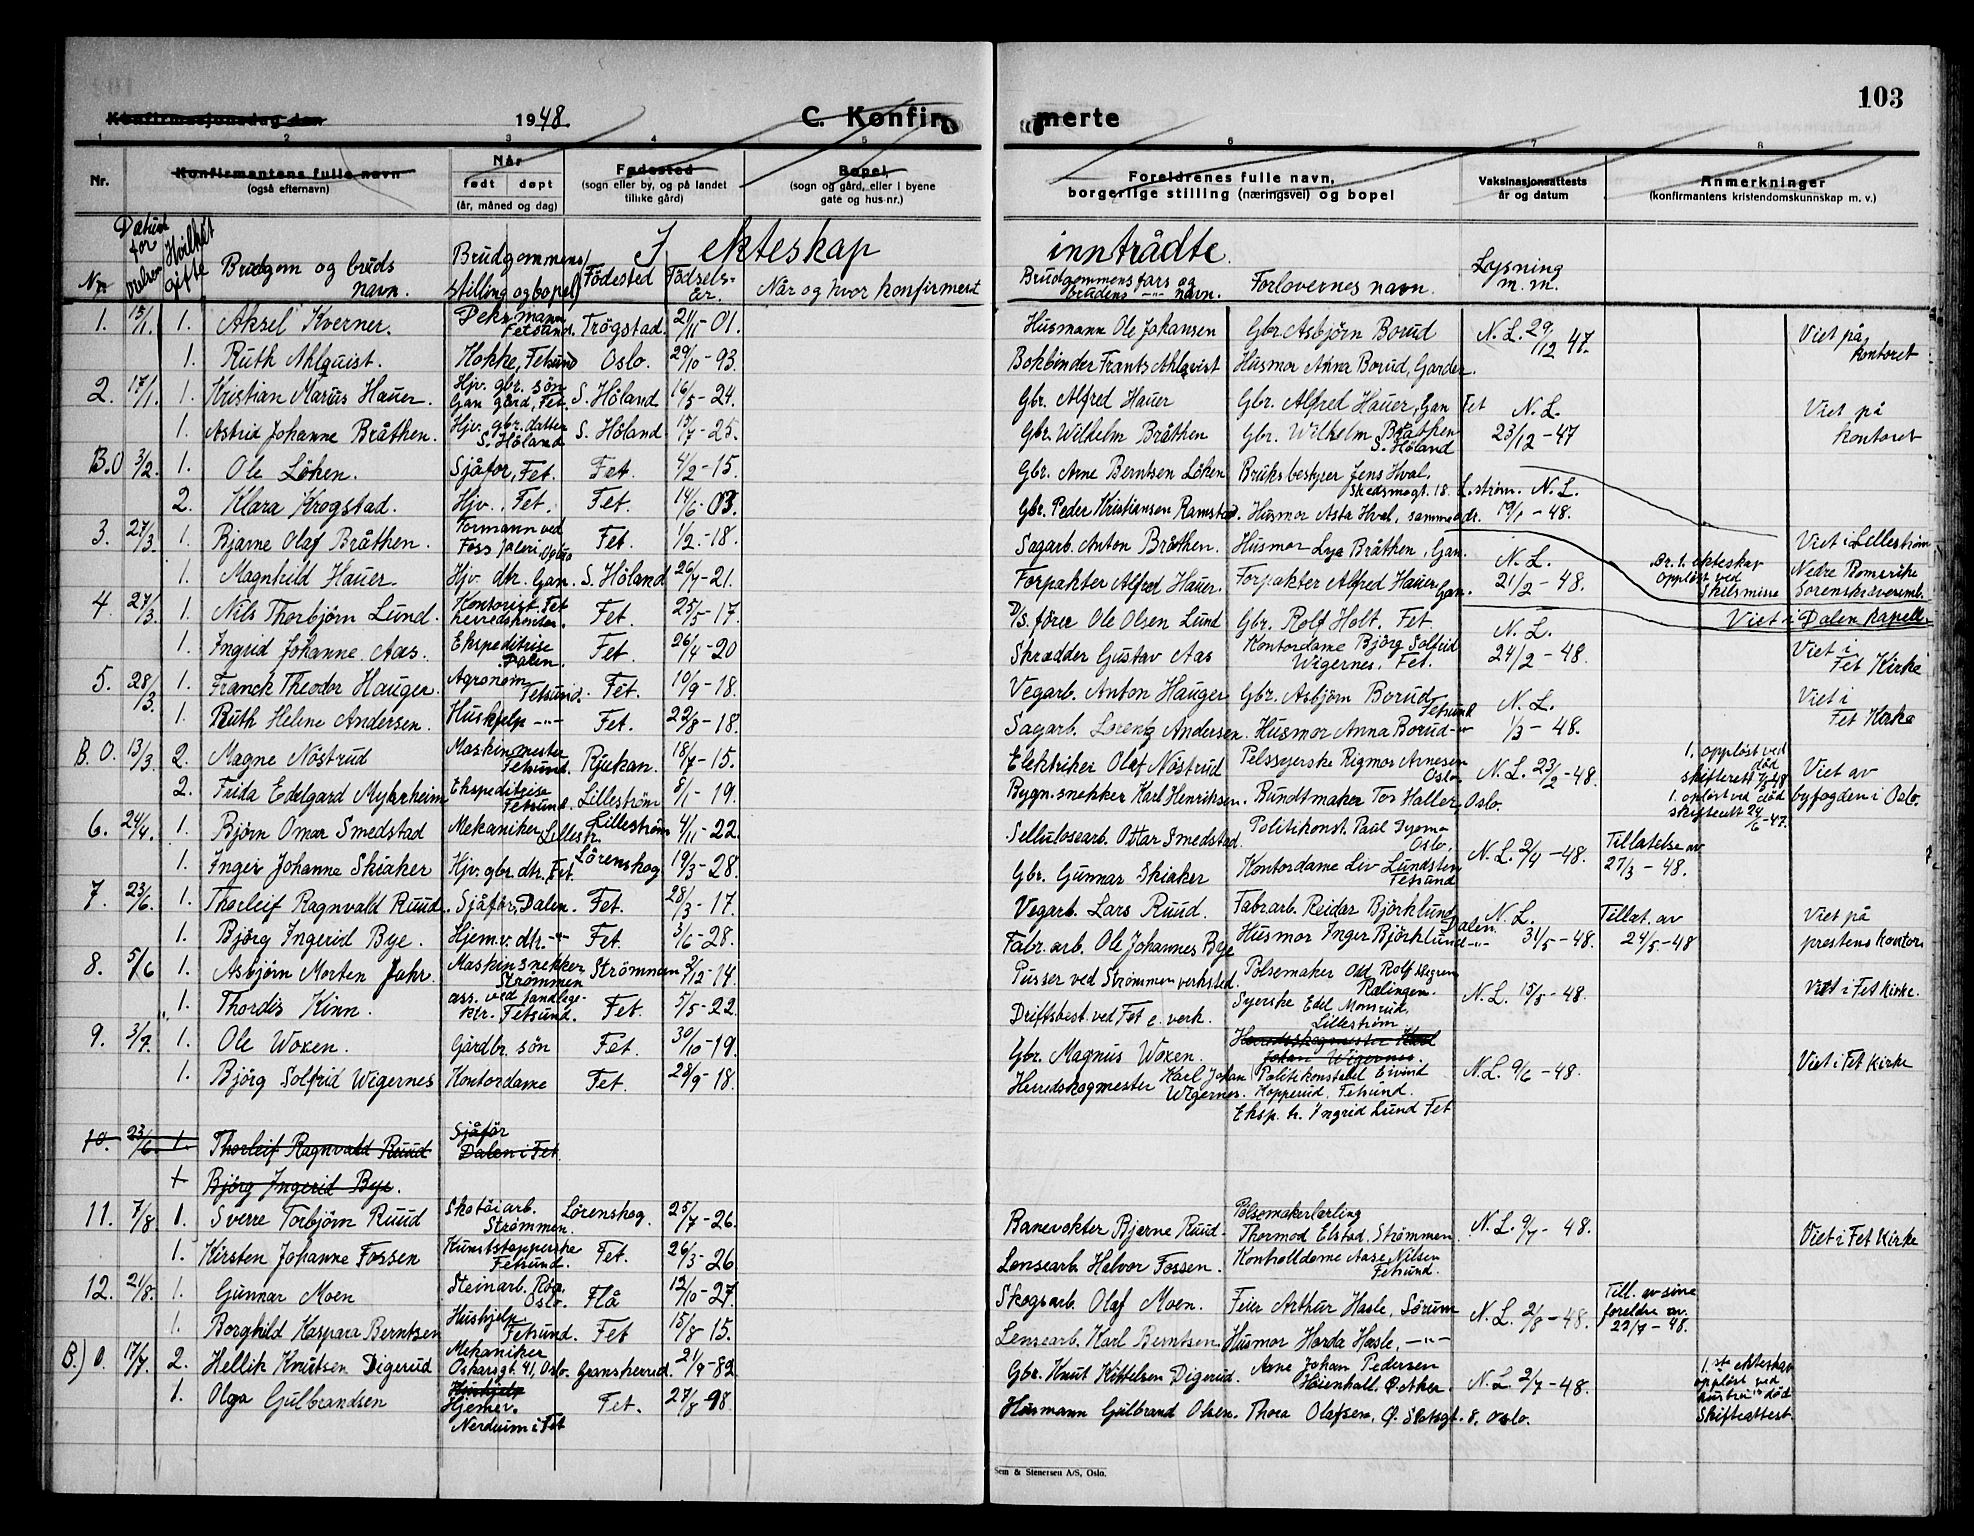 103
Konfirmasjonsdag den 1948. C. Konfirmerte
1 2 3 4 5 6 7 8
Nr. Konfirmantens fulle navn (også efternavn) Når født døpt (år, måned og dag) Fødested (sogn eller by, og på landet tillike gård) Bopel (sogn og gård, eller i byene gate og hus-nr.) Foreldrenes fulle navn, borgerlige stilling (næringsvei) og bopel Vaksinasjonsattests år og datum Anmerkninger (konfirmantens kristendomskunnskap m. v.)
I ekteskap inntrådte.
Nr. Datum for vielsen Hvilket gifte Brudgom og bruds navn. Brudgommens stilling og bopel Födested Födsels-år. Når og hvor konfirmert Brudgommens fars og brudens -"- navn. Forlovernes navn. Lysning m. m.
1. 15/1. 1. Aksel Kverner. Fetsund. Trögstad. 21/11-01. Husmann Ole Johansen Gbr. Asbjörn Borud N. L. 29/12 47. Viet på
1. Ruth Ahlquist. Fetsund Oslo. 29/10-93. Bokbinder Frants Ahlqvist Husmor Anna Borud, Garder. kontoret
2. 17/1. 1. Kristian Marius Hauer. Hjv. gbr. sön Gan gård, Fet. S. Höland 16/5-24. Gbr. Alfred Hauer Gbr. Alfred Hauer, Gan Fet N. L. Viet på
1. Astrid Johanne Bråthen. Hjv. gbr. datter S. Höland S. Höland 15/7-25. Gbr. Wilhelm Bråthen Gbr. Wilhelm Bråthen S. Höland 23/12-47 kontoret
B.O 3/2. 1. Ole Löken. Sjåför, Fet. Fet. 4/2-15. Gbr. Arne Berntsen Löken Bruksbestyrer Jens Hval, Skedsmogt. 18. L.ström. N. L.
2. Klara Krogstad. Hjv., Fet. Fet. 14/6-03. Gbr. Peder Kristiansen Ramstad. Husmor Asta Hval, samme adr. 19/1-48. Viet i Lilleström
3. 27/3. 1. Bjarne Olaf Bråthen. Formann ved Foss Fet. 1/2.-18. Sagarb. Anton Bråthen. Husmor Lya Bråthen, Gan. N. L. Br. 1. ekteskap oppløst ved skilsmisse Nedre Romerike Sorenskriveremb.
1. Magnhild Hauer. Hjv. dtr. Gan. S. Höland 26/7-21. Forpakter Alfred Hauer. Forpakter Alfred Hauer Gan. 21/2-48. Viet i Dalen kapell.
4. 27/3. 1. Nils Thorbjörn Lund. Kontorist. Fet herredskontor. Fet. 25/5-17. D/s. förer Ole Olsen Lund Gbr. Rolf Holt. Fet. N. L. Viet i
1. Ingrid Johanne Aas. Ekspeditrise Dalen. Fet. 26/4-20 Skrædder Gustav Aas Kontordame Björg Solfrid Wigernes, Fet. 24/2-48. Fet Kirke
5. 28/3. 1. Franck Theodor Hauger. Agronom Fetsund. Fet. 10/9-18. Vegarb. Anton Hauger Gbr. Asbjörn Borud Fetsund N. L. Viet i
1. Ruth Helene Andersen. Hushjelp -"- Fet. 22/8-18. Sagarb. Lorentz Andersen. Husmor Anna Borud -"- 1/3-48. Fet Kirke
B. O. 13/3 2. Magne Nöstrud Maskinmester Fetsund. Rjukan. 18/7-15. Elektriker Olaf Nöstrud Pelssyerske Rigmor Arnesen Oslo. N. L. 23/2-48. 1. oppløst ved død skifterett Viet av
2. Frida Edelgard Myhrheim Ekspeditrise Fetsund. Lilleström 8/1-19. Bygn.snekker Karl Henriksen. Bundtmaker Tor Haller, Oslo. 1. oppløst ved död skifterett 24/6-47. byfogden i Oslo.
6. 24/4. 1. Björn Omar Smedstad Mekaniker, Lillestr. Lilleström 4/11-22. Sellulosearb. Ottar Smedstad. Politikonst. Paul Oslo. N. L. 2/4-48. Tillatelse av 27/3-48.
1. Inger Johanne Skiaker Hjv. gbr. dtr. Fet. Lörenskog 19/3-28. Gbr. Gunnar Skiaker Kontordame Liv Lundsten Fetsund
7. 23/6. 1. Thorleif Ragnvald Ruud. Sjåför, Dalen. Fet. 28/3-17. Vegarb. Lars Ruud. Fabrarb. Reidar Björklund Dalen. N. L. Tillat. av Viet på
1. Björg Ingerid Bye. Hjemv. dtr. -"- Fet. 3/6-28. Fabr.arb. Ole Johannes Bye Husmor Inger Björklund -"- 31/5-48. 24/5-48 prestens kontor.
8. 5/6 1. Asbjörn Morten Jahr. Maskinsnekker Strömmen Strömmen 3/12-14. Pusser ved Strömmen verksted. Pölsemaker Odd Rolf Rælingen. N. L. 15/5-48. Viet i Fet kirke.
1. Thordis Kinn. ass. ved tandlege-ktr. Fetsund. Fet. 5/5-22. Driftsbest. ved Fet e. verk. Syerske Edel Monsrud, Lilleström
9. 3/7. 1. Ole Woxen. Gårdbr. sön Fet. 30/10-19. Gbr. Magnus Woxen. Herredsskogmester Karl Johan Wigernes. N. L. 9/6-48. Viet i Fet kirke
1. Björg Solfrid Wigernes Kontordame Fet. 28/9-18. Herredskogmester Karl Johan Wigernes. Politikonstabel Eivind Kopperud, Fetsund. Eksp. tr. Yngrid Lund Fet
10. 23/6 1. Thorleif Ragnvald Ruud Sjåför Dalen i Fet
1 Björg Ingerid Bye.
11. 7/8 1. Sverre Torbjörn Ruud Skotöiarb. Strömmen. Lörenskog. 25/7-26. Banevokter Bjarne Ruud. Pölsemakerlærling Thormod Elstad, Strömmen. N. L. 9/7-48. Viet i Fet Kirke
1. Kirsten Johanne Fossen Kunststopperske Fetsund. Fet. 26/3-26 Lensearb. Halvor Fossen. Kontrolldame Aase Nilsen Fetsund.
12. 21/8. 1. Gunnar Moen Steinarb. Roa Oslo. Flå 12/10-27. Skogsarb. Olaf Moen. Feier Arthur Hasle, Sörum N. L. 2/8-48. Till. av sine foreldre av. 22/7-48.
1. Borghild Kaspara Berntsen Hushjelp Fetsund. Fet 15/8 15. Lensearb. Karl Berntsen Husmor Harda Hasle, -"-
B.) O. 17/7. 2. Hellik Knutsen Digerud Mekaniker Oskarsgt. 41, Oslo. Gransherred. 21/9-82 Gbr. Knut Kittelsen Digerud. Arne Johan Pedersen N. L. 2/7-48. 1. ste ekteskap oppløst ved hustruens död
1. Olga Gulbrandsen Hushjelp Hjemv. Nerdrum i Fet Fet. 27/8-98. Husmann Gulbrand Olsen. Thora Olafsen, Ø. Slotsgt. 8. Oslo. Skifteattest.
Sem & Stenersen A/S, Oslo.